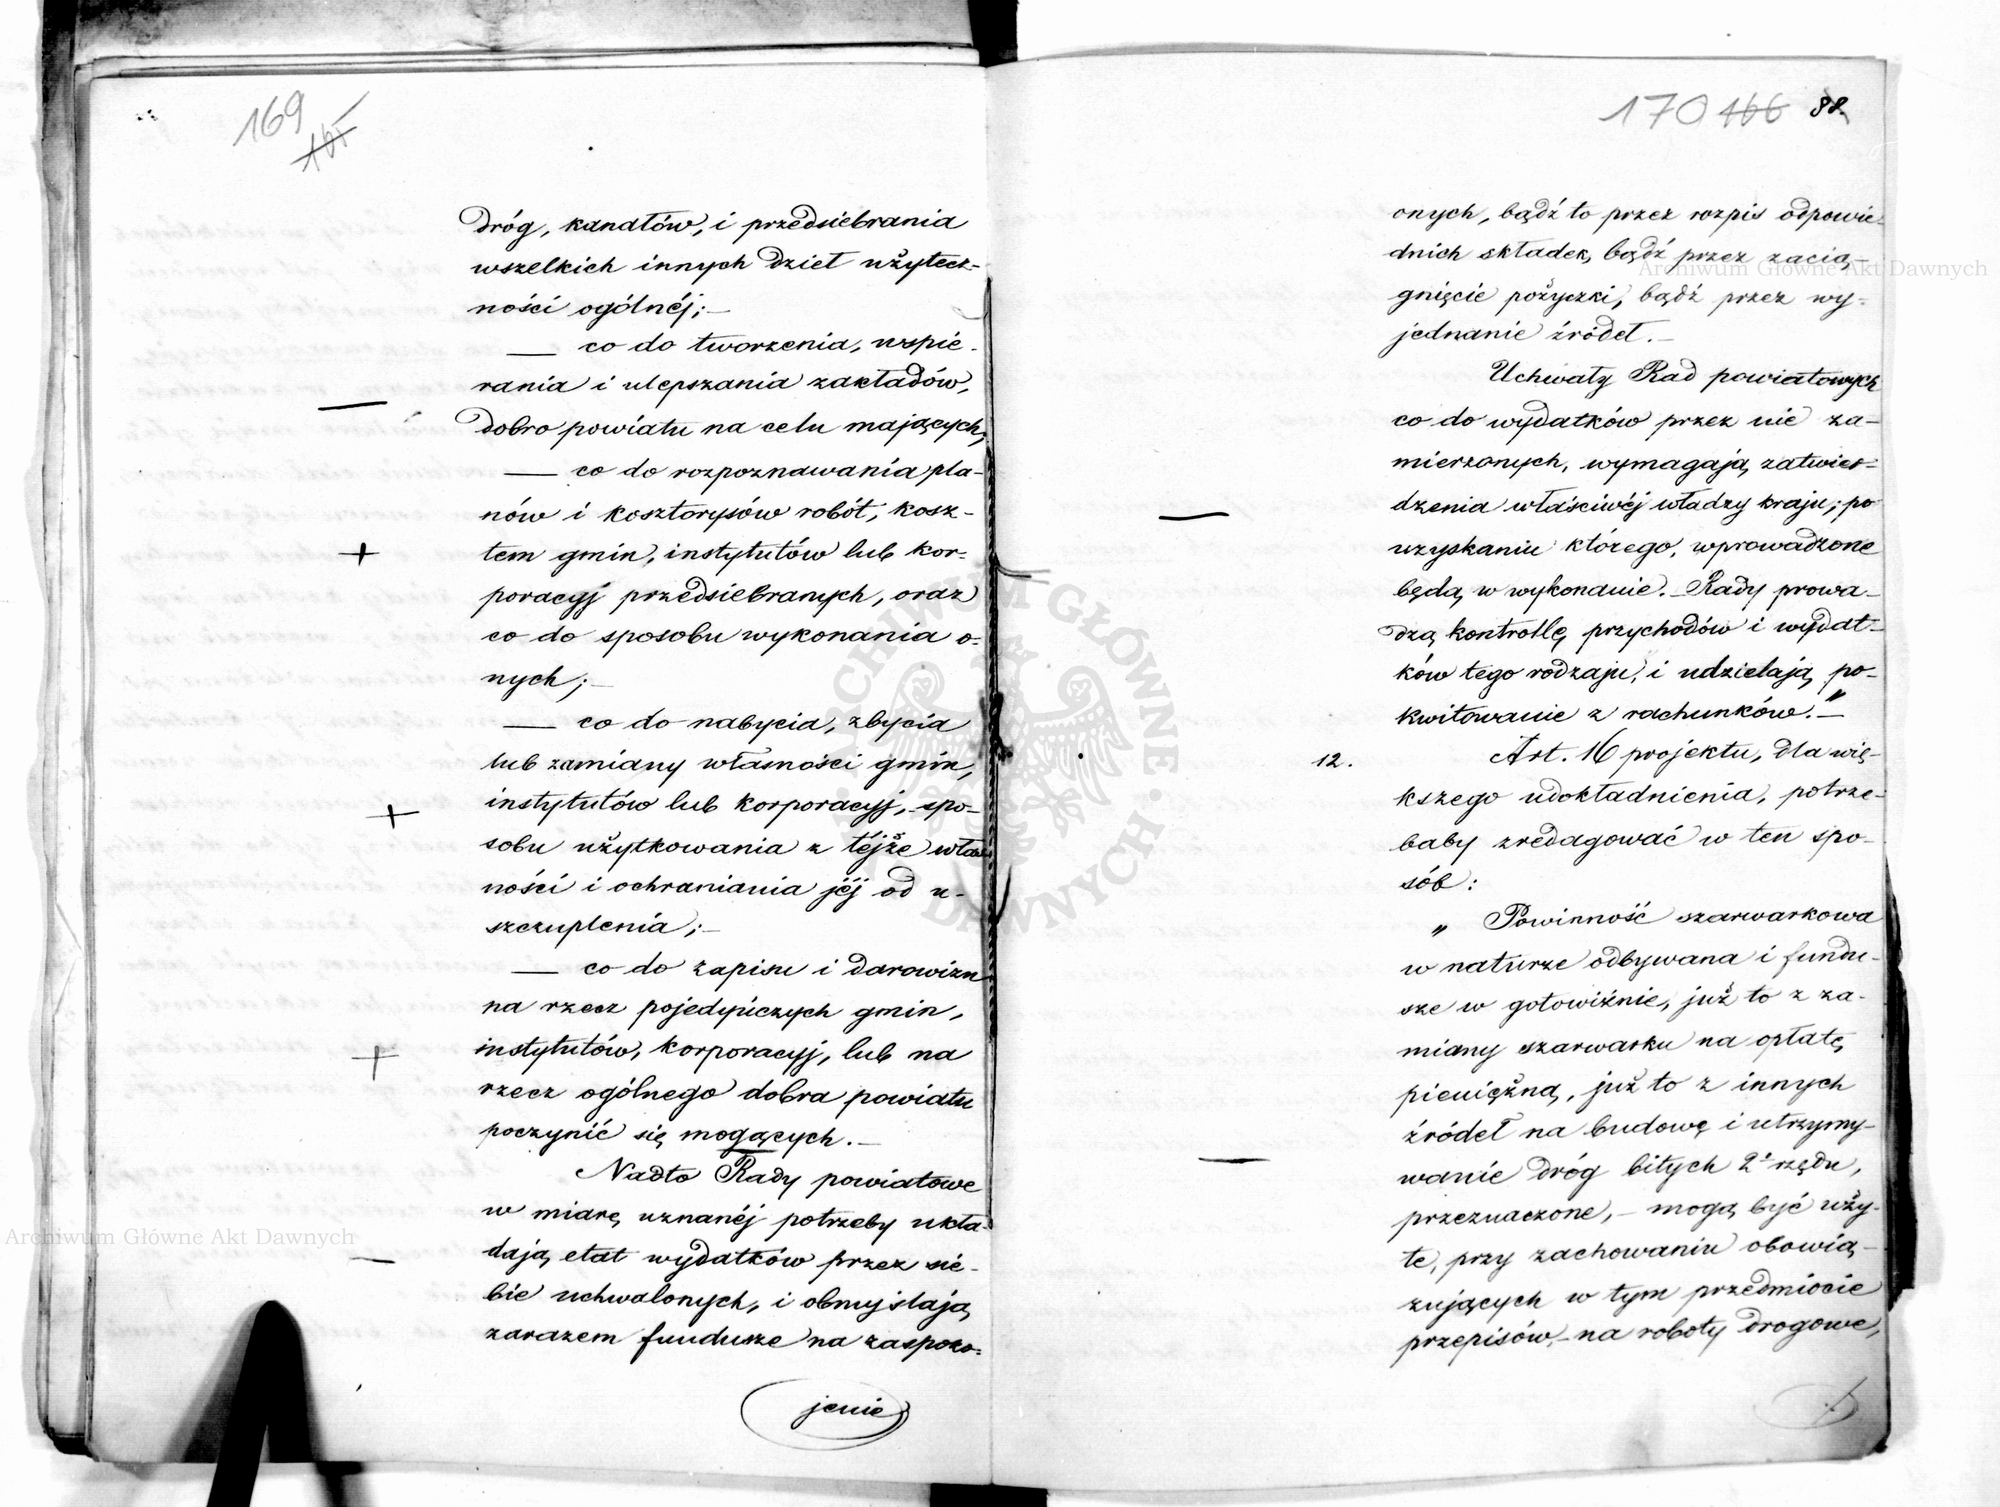 169
dróg, kanałów, i przedsiebrania
wszelkich innych dzieł użytecz-
ności ogólnéj;—
— co do tworzenia, wspie-
rania i ulepszania zakładów,
dobro powiatu na celu mających;
— co do rozpoznawania pla-
nów i kosztorysów robót, kosz-
tem gmin, instytutów lub kor-
poracyj przedsiebranych, oraz
co do sposobu wykonania o-
nych;—
— co do nabycia, zbycia
lub zamiany własności gmin,
instytutów lub korporacyj, spo-
sobu użytkowania z téjże włas
ności i ochraniania jéj od u-
szczuplenia;—
— co do zapisu i darowizn
na rzecz pojedyńczych gmin,
instytutów, korporacyj, lub na
rzecz ogólnego dobra powiatu
poczynić się mogących.—
Nadto Rady powiatowe
w miarę uznanéj potrzeby ukła-
dają etat wydatków przez sie-
bie uchwalonych, i obmyślają
zarazem fundusze na zaspoko-
jenie
170 166 88.
onych, bądź to przez rozpis odpowie-
dnich składek, bądź przez zacią-
gnięcie pożyczki, bądź przez wy-
jednanie źródeł.—
Uchwały Rad powiatowych
co do wydatków przez nie za-
mierzonych, wymagają zatwier-
dzenia właściwéj władzy kraju; po
uzyskaniu którego, wprowadzone
będą w wykonanie.—Rady prowa-
dzą kontrollę przychodów i wydat-
ków tego rodzaju, i udzielają po-
kwitowanie z rachunków."—
12. Art. 16 projektu, dla wię-
kszego udokładnienia, potrze-
baby zredagować w ten spo-
sób:
„ Powinność szarwarkowa
w naturze odbywana i fundu-
sze w gotowiźnie, już to z za-
miany szarwarku na opłatę
pieniężną, już to z innych
źródeł na budowę i utrzymy-
wanie dróg bitych 2º rzędu,
przeznaczone,— mogą być uży-
te, przy zachowaniu obowią-
zujących w tym przedmiocie
przepisów,—na roboty drogowe,
Archiwum Główne Akt Dawnych
Archiwum Główne Akt Dawnych
ARCHIWUM GŁÓWNE AKT DAWNYCH